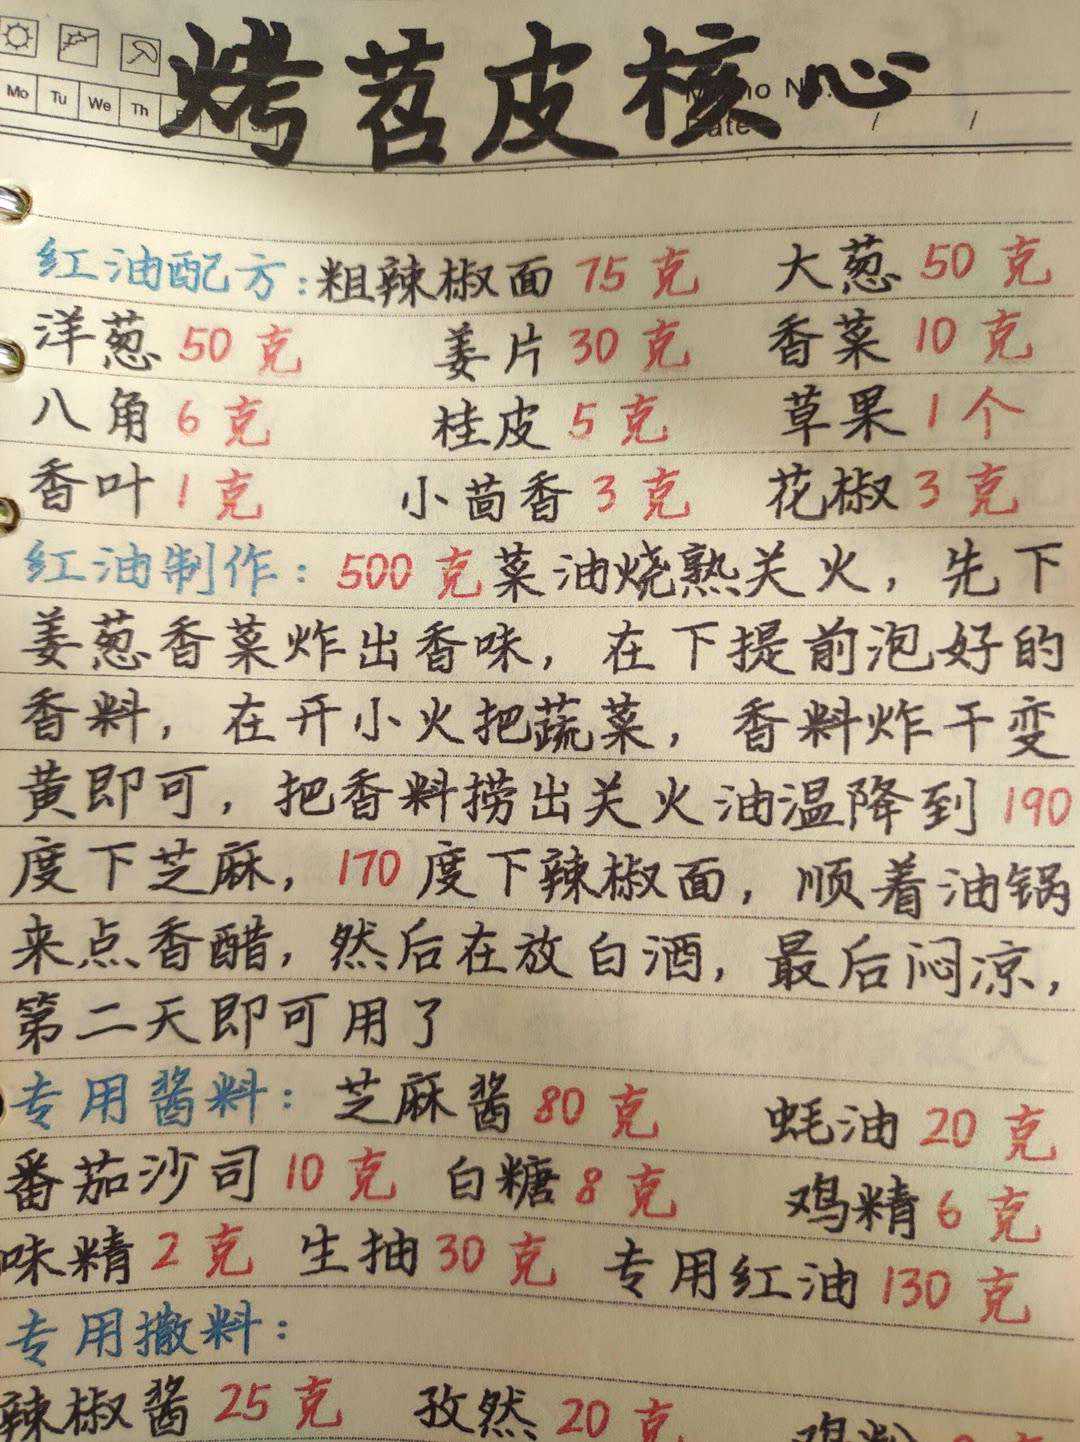 烤苕皮核心
Mo Tu We Th
Memo No.
Date / /
红油配方:粗辣椒面 75 克 大葱 50 克
洋葱 50 克 姜片 30 克 香菜 10 克
八角 6 克 桂皮 5 克 草果 1 个
香叶 1 克 小茴香 3 克 花椒 3 克
红油制作: 500 克菜油烧熟关火,先下
姜葱香菜炸出香味,在下提前泡好的
香料,在开小火把蔬菜,香料炸干变
黄即可,把香料捞出关火油温降到 190
度下芝麻,170 度下辣椒面,顺着油锅
来点香醋,然后在放白酒,最后闷凉,
第二天即可用了
专用酱料: 芝麻酱 80 克 蚝油 20 克
番茄沙司 10 克 白糖 8 克 鸡精 6 克
味精 2 克 生抽 30 克 专用红油 130 克
专用撒料:
辣椒酱 25 克 孜然 20 克